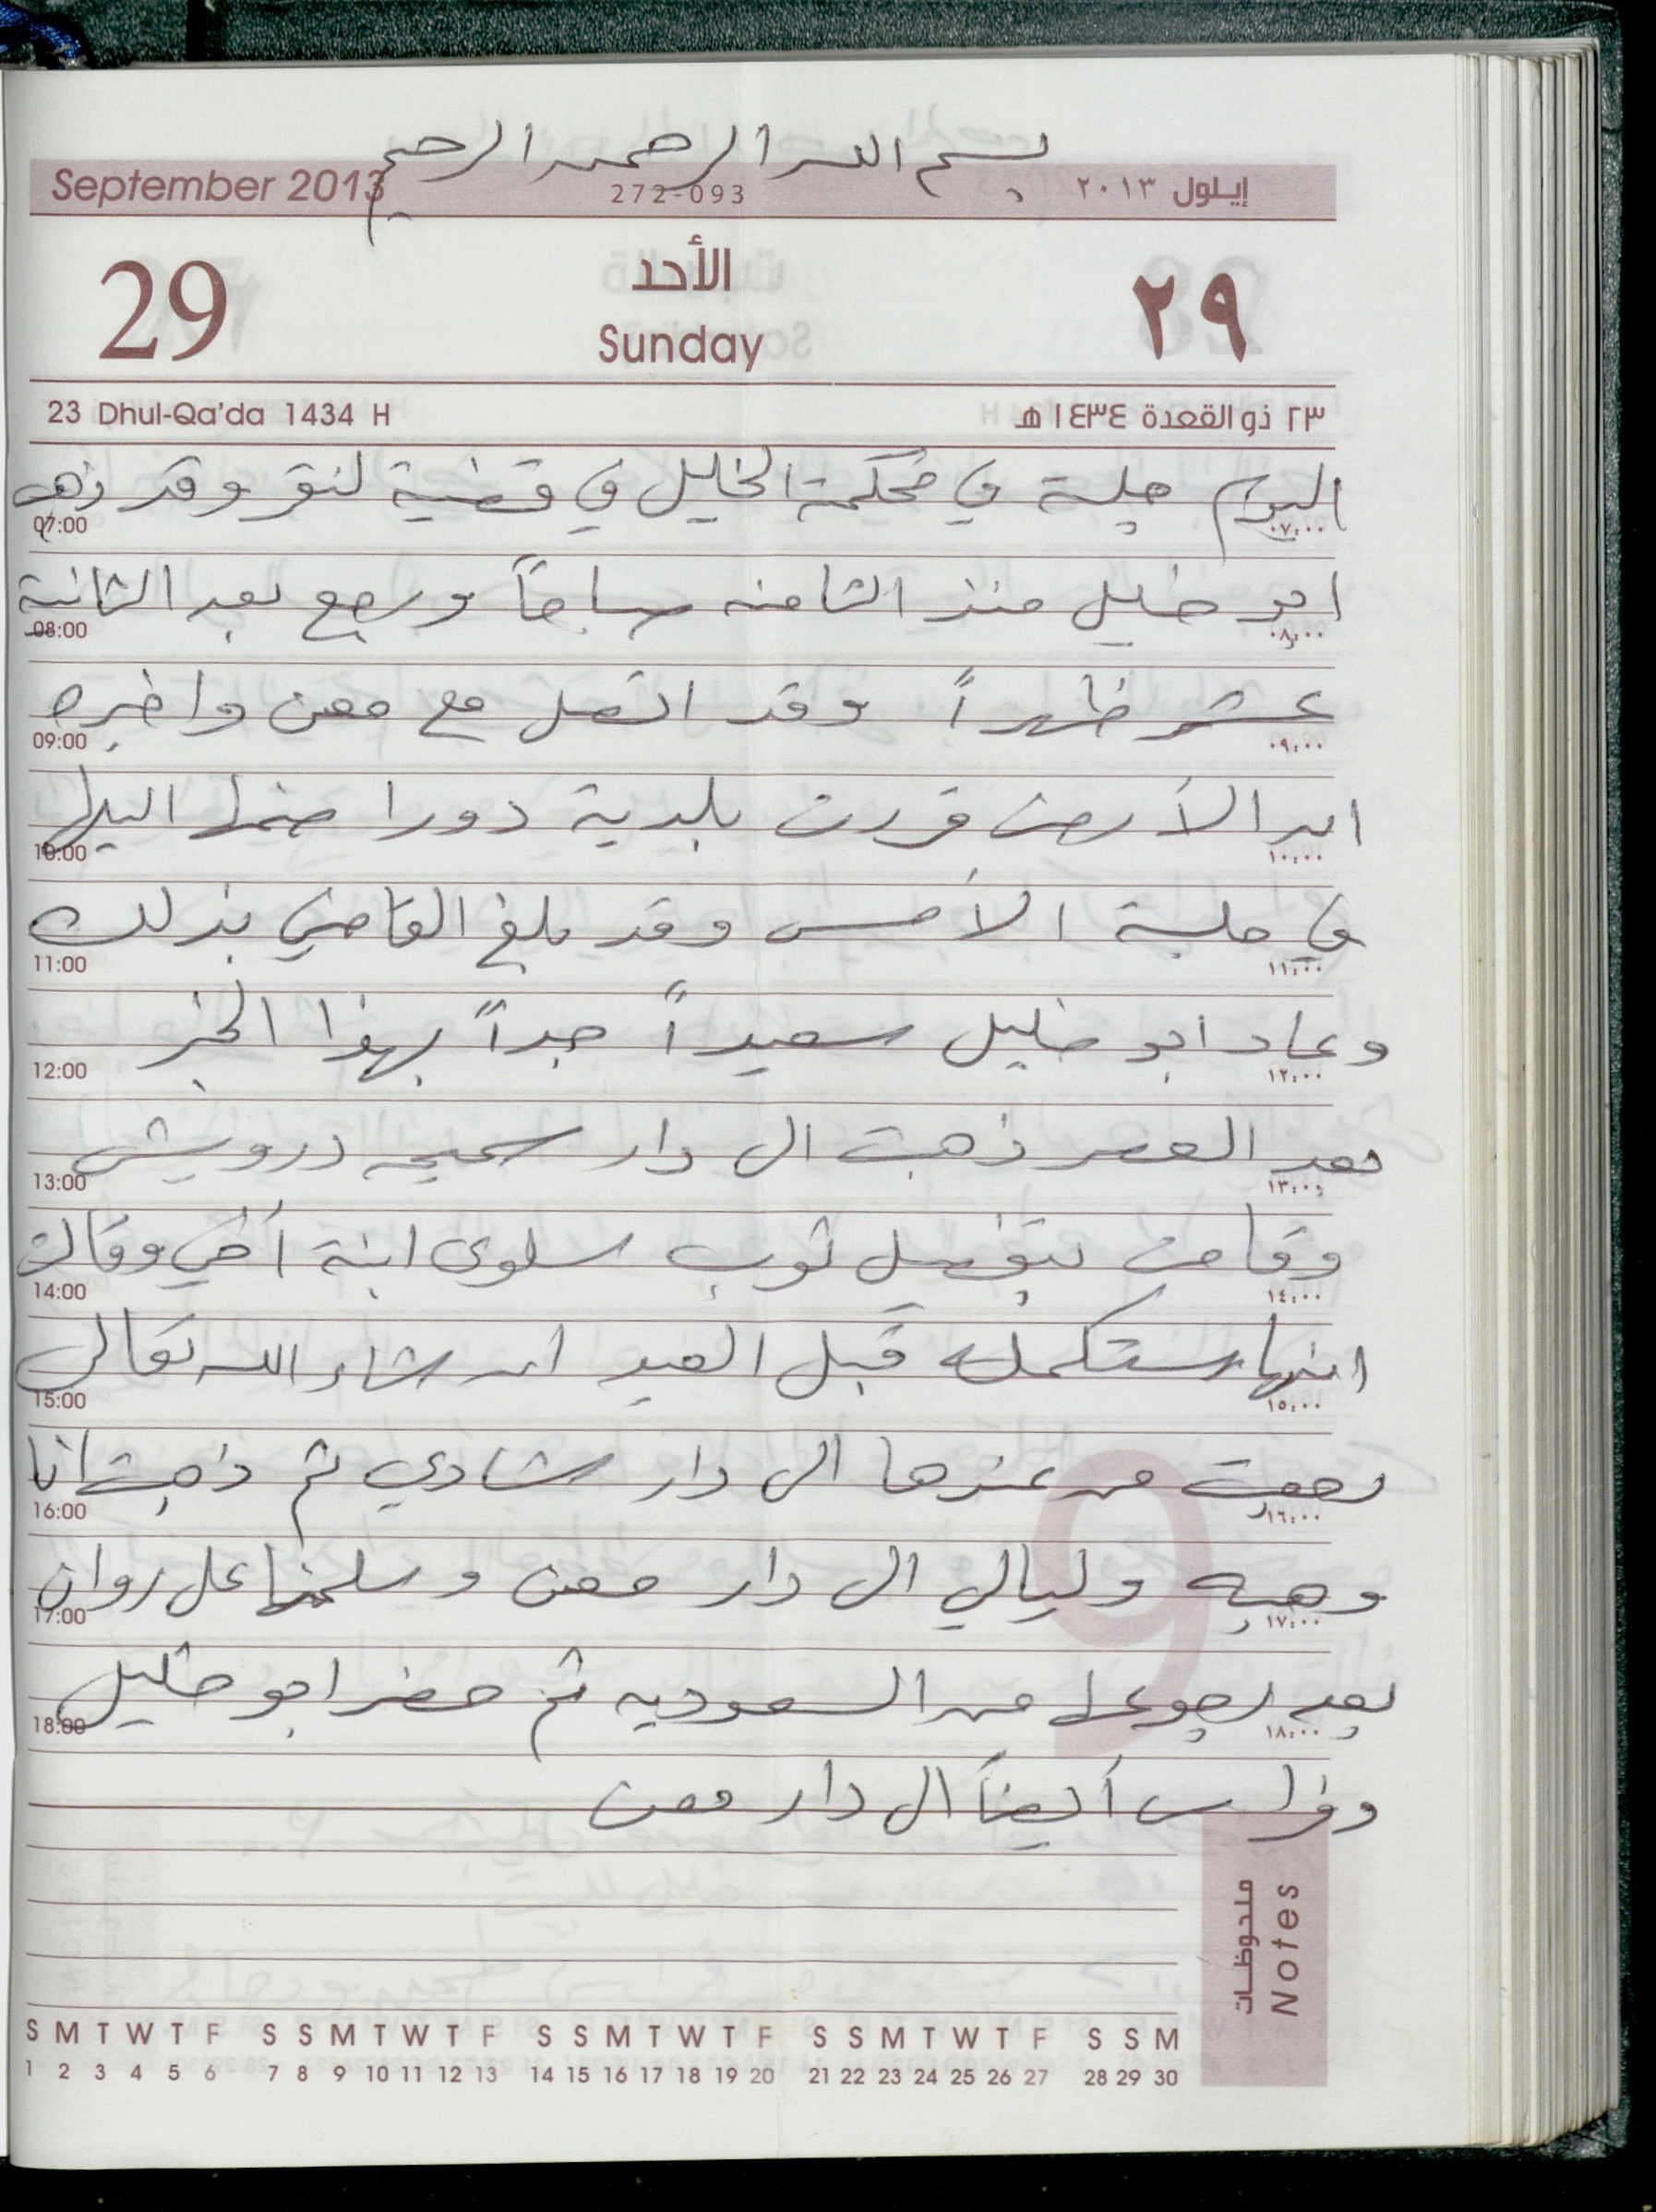 بسم الله الرحمن الرحيم
September 2013 272-093 إيلول ٢٠١٣
29 الأحد ٢٩
Sunday
23 Dhul-Qa'da 1434 H ٢٣ ذو القعدة ١٤٣٤ هـ
اليوم جلسة في محكمة الخليل في قضية لنقر وقد ذهب
07:00 ٠٧:٠٠
ابو خليل منذ الثامنه صباحاً ورجع بعد الثانية
08:00 ٠٨:٠٠
عشر ظهراً وقد اتصل مع معن واخبره
09:00 ٠٩:٠٠
ان الأرض قررت بلدية دورا ضمها اليها
10:00 ١٠:٠٠
في جلسة الأمس وقد بلغ القاضي بذلك
11:00 ١١:٠٠
وعاد ابو خليل سعيداً جداً بهذا الخبر
12:00 ١٢:٠٠
بعد العصر ذهبت الى دار سميحه درويش
13:00 ١٣:٠٠
وقامت بتفصيل ثوب سلوى ابنة أخي وقالت
14:00 ١٤:٠٠
انها ستكمله قبل العيد ان شاء الله تعالى
15:00 ١٥:٠٠
رجعت من عندها الى دار شادي ثم ذهبت انا
16:00 ١٦:٠٠
وهبه وليالي الى دار معن وسلمنا على روان
17:00 ١٧:٠٠
بعد رجوعها من السعوديه ثم حضر ابو خليل
18:00 ١٨:٠٠
وفراس أيضاً الى دار معن
ملحوظات
Notes
S M T W T F S S M T W T F S S M T W T F S S M T W T F S S M
1 2 3 4 5 6 7 8 9 10 11 12 13 14 15 16 17 18 19 20 21 22 23 24 25 26 27 28 29 30